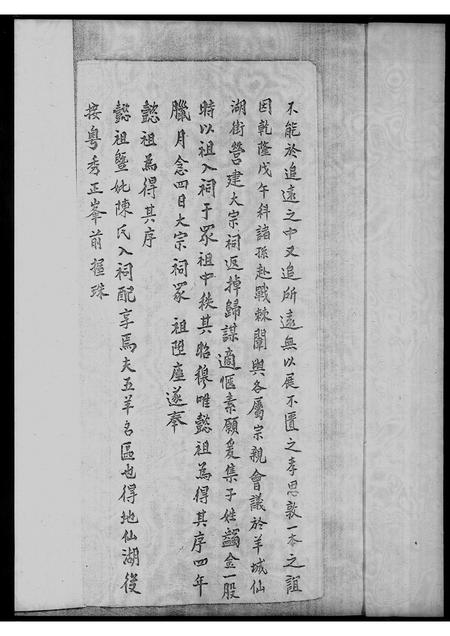 不能於追遠之中又追所遠無以展不匱之孝思敦一本之誼
因乾隆戊午科諸孫赴戰棘闈與各屬宗親會議於羊城仙
湖街營建大宗祠返掉歸謀適愜素願爰集子姓蠲金一股
時以祖入祠于眾祖中秩其昭穆唯懿祖為得其序四年
臘月念四日大宗祠眾 祖陞座遂奉
懿祖為得其序
懿祖暨妣陳氏入祠配享焉夫五羊名區也得地仙湖後
按粵秀正峯前握珠